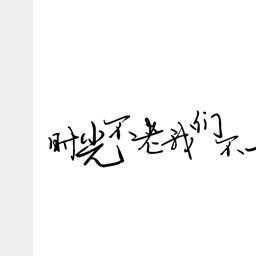 时光不老我们不